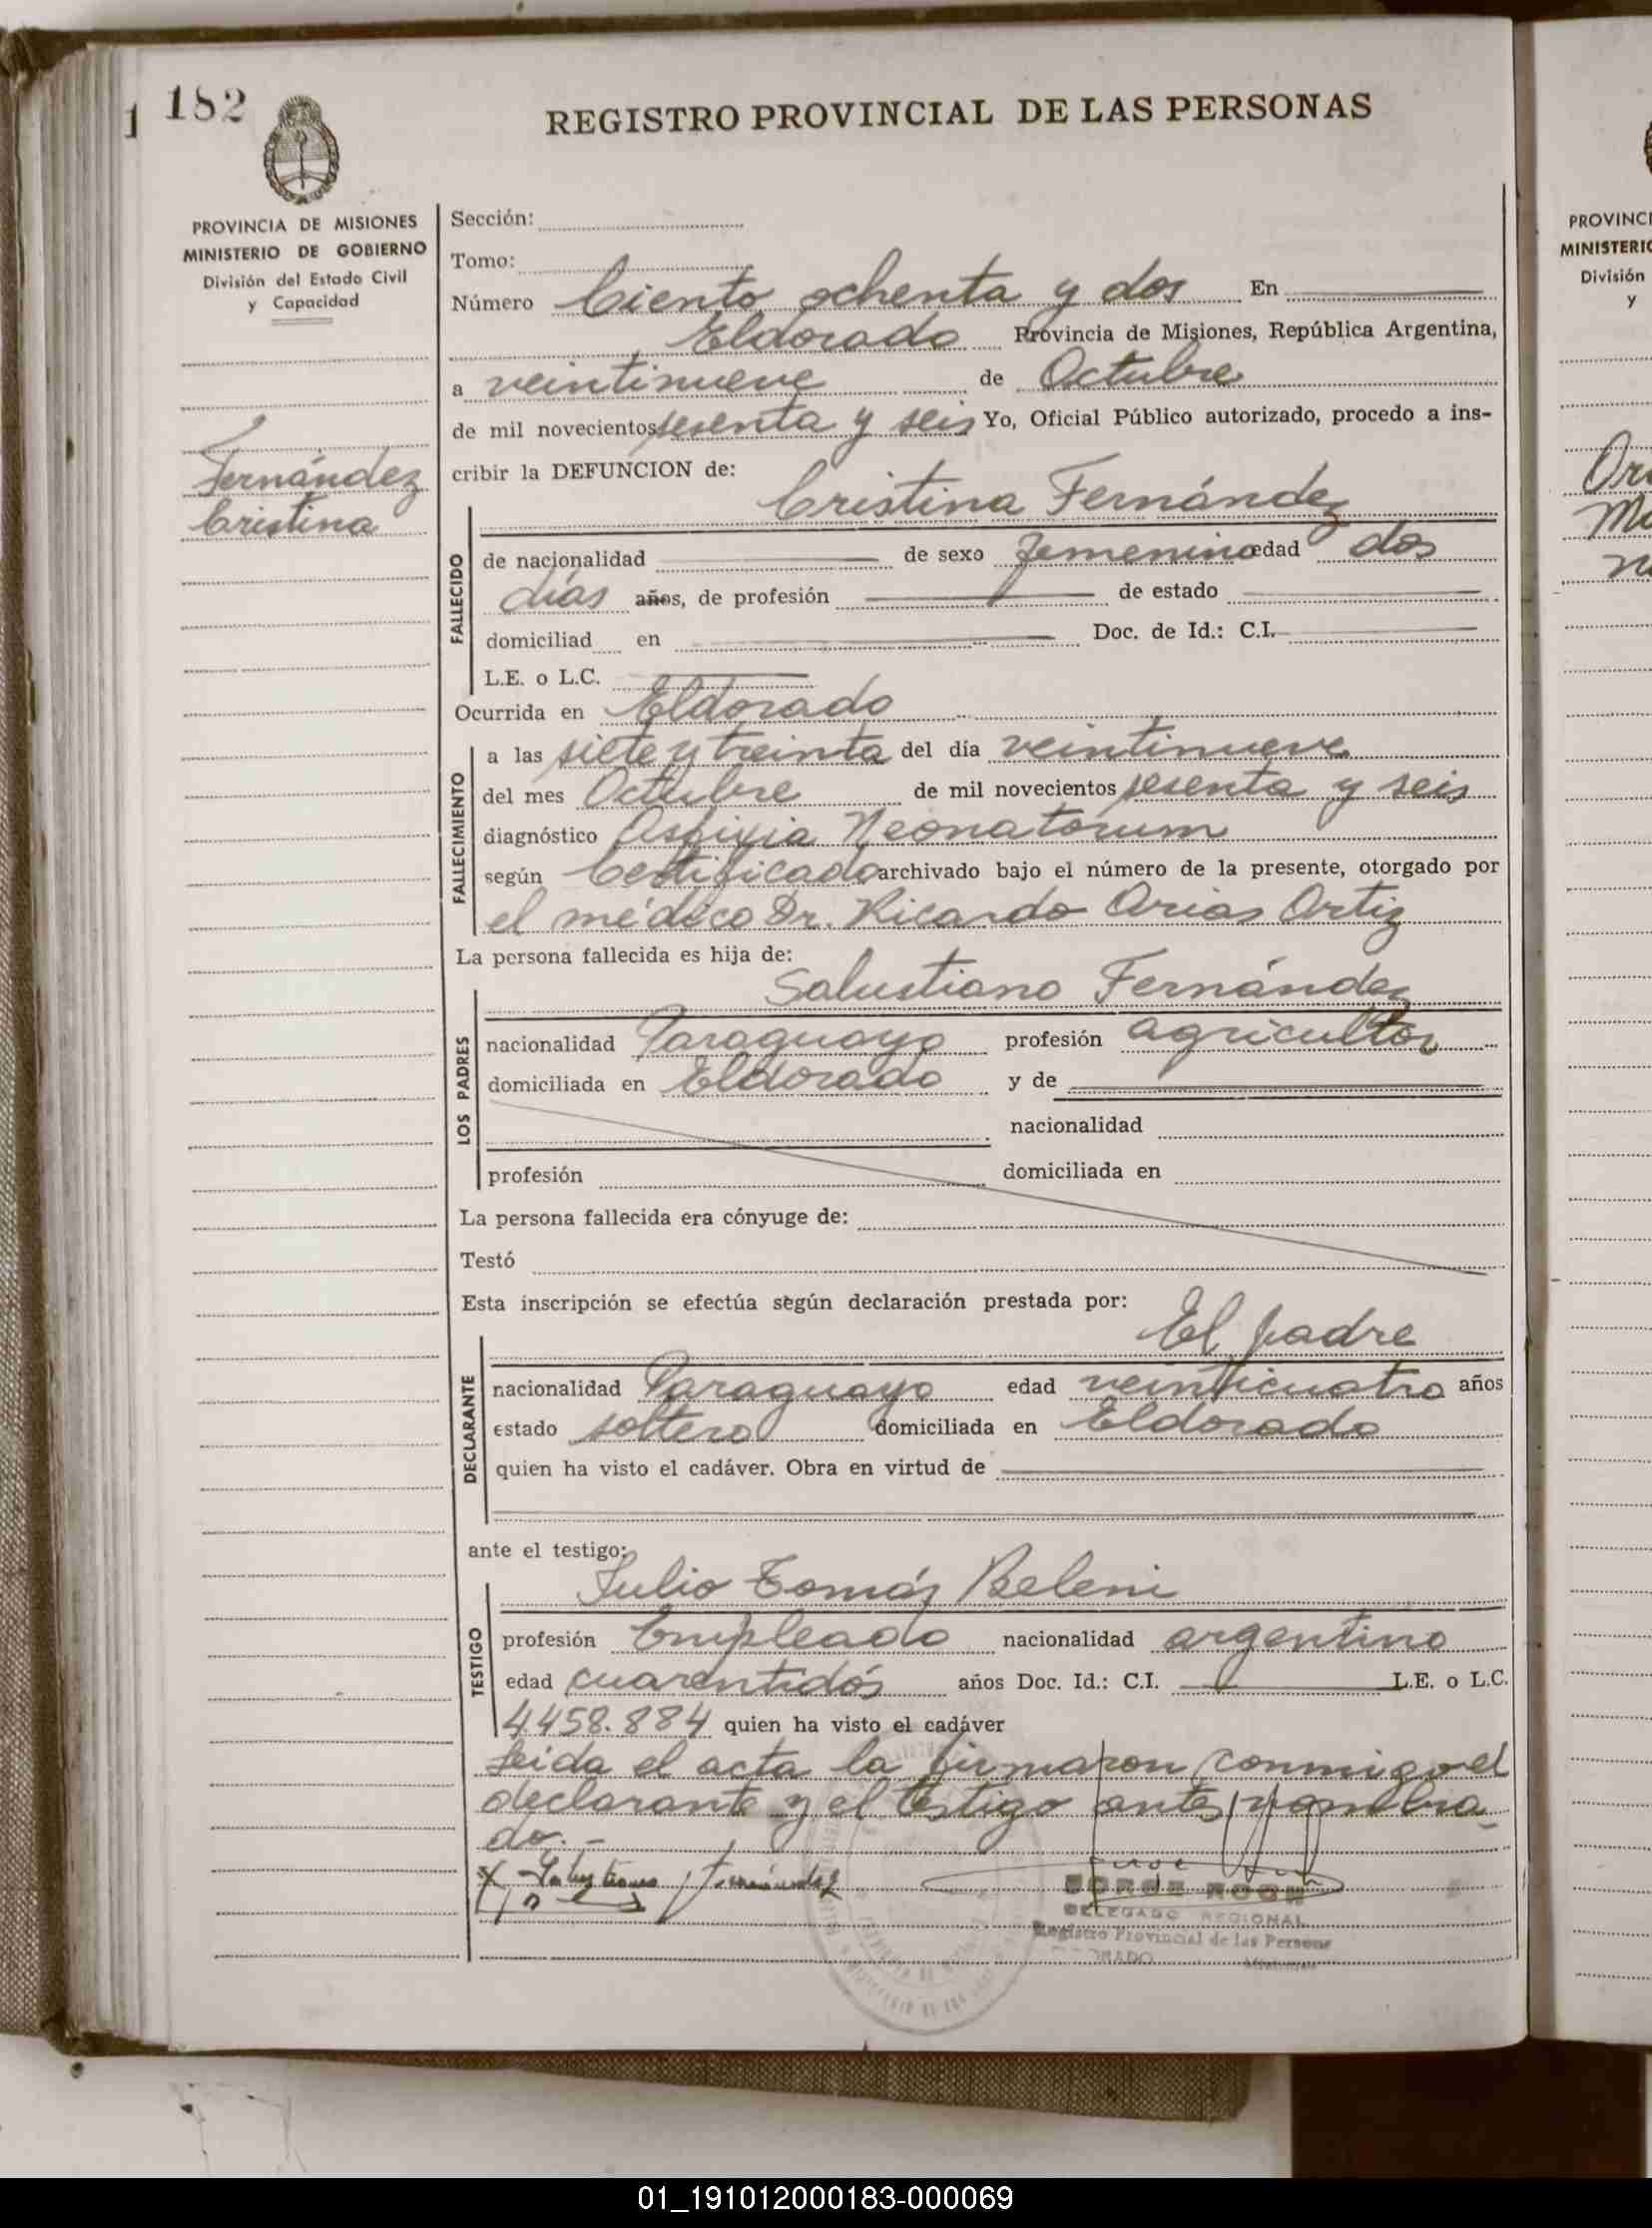 1 182
REGISTRO PROVINCIAL DE LAS PERSONAS
PROVINCIA DE MISIONES
MINISTERIO DE GOBIERNO
División del Estado Civil
y Capacidad
Fernández
Cristina
Sección:
Tomo:
Número Ciento ochenta y dos En
Eldorado Provincia de Misiones, República Argentina,
a veintinueve de Octubre
de mil novecientos sesenta y seis Yo, Oficial Público autorizado, procedo a ins-
cribir la DEFUNCION de:
Cristina Fernández
FALLECIDO
de nacionalidad de sexo femenino edad dos
días años, de profesión de estado
domiciliad en Doc. de Id.: C.I.
L.E. o L.C.
Ocurrida en Eldorado
FALLECIMIENTO
a las siete y treinta del día veintinueve
del mes Octubre de mil novecientos sesenta y seis
diagnóstico Asfixia Neonatorum
según Certificado archivado bajo el número de la presente, otorgado por
el médico Dr. Ricardo Arias Ortiz
La persona fallecida es hija de:
Salustiano Fernández
LOS PADRES
nacionalidad Paraguayo profesión agricultor
domiciliada en Eldorado y de
nacionalidad
profesión domiciliada en
La persona fallecida era cónyuge de:
Testó
Esta inscripción se efectúa según declaración prestada por:
El padre
DECLARANTE
nacionalidad Paraguayo edad veinticuatro años
estado soltero domiciliada en Eldorado
quien ha visto el cadáver. Obra en virtud de
ante el testigo:
Julio Tomás Beleni
TESTIGO
profesión Empleado nacionalidad argentino
edad cuarentidós años Doc. Id.: C.I. L.E. o L.C.
4.458.884 quien ha visto el cadáver
Leida el acta la firmaron conmigo el
declarante y el testigo antes nombra
do.-
Salustiano Fernández
DELEGADO REGIONAL
Registro Provincial de las Persona
PROVINCI
MINISTERIO
División
y
01_191012000183-000069